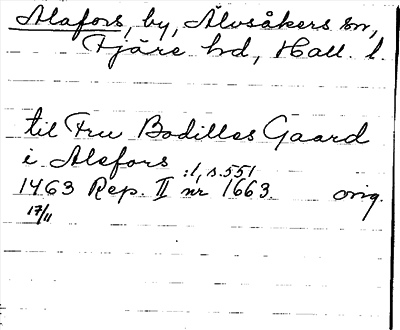 Alafors, by, Älvsåkers sn,
Fjäre hd, Hall. l.
til Fru Bodillas Gaard
i Alafors
:1, s. 551
1463 Rep. II nr 1663. orig.
17/11